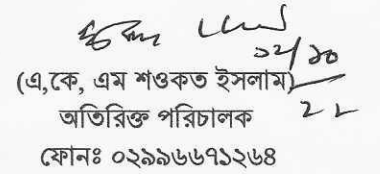 ১২/১০
২২
(এ,কে, এম শওকত ইসলাম)
অতিরিক্ত পরিচালক
ফোনঃ ০২৯৯৬৬৭১২৬৪